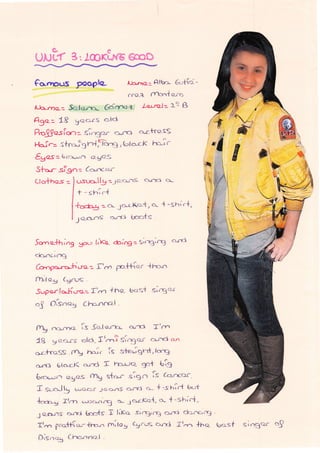 UNIT 3: LOOKING GOOD
Famous people
Name: Alba Gutié-
rrez Montero
Name: Selena Gómez Level: 2º B
Age: 18 years old
Proffesion: Singer and actress
Hair: straight, long, black hair
Eyes: brown eyes
Star sign: Cancer
Clothes: usually: jeans and a
t-shirt
today: a jacket, a t-shirt,
jeans and boots
Something you like doing: singing and
dancing
Comparative: I'm prettier than
Miley Cyrus
Superlative: I'm the best singer
of Disney Channel.
My name is Selena and I'm
18 years old, I'm a singer and an
actress My hair is straight, long
and black and I have got big
brown eyes My star sign is Cancer.
I usually wear jeans and a t-shirt but
today I'm wearing a jacket, a t-shirt,
jeans and boots I like singing and dancing.
I'm prettier than Miley Cyrus and I'm the best singer of
Disney Channel.